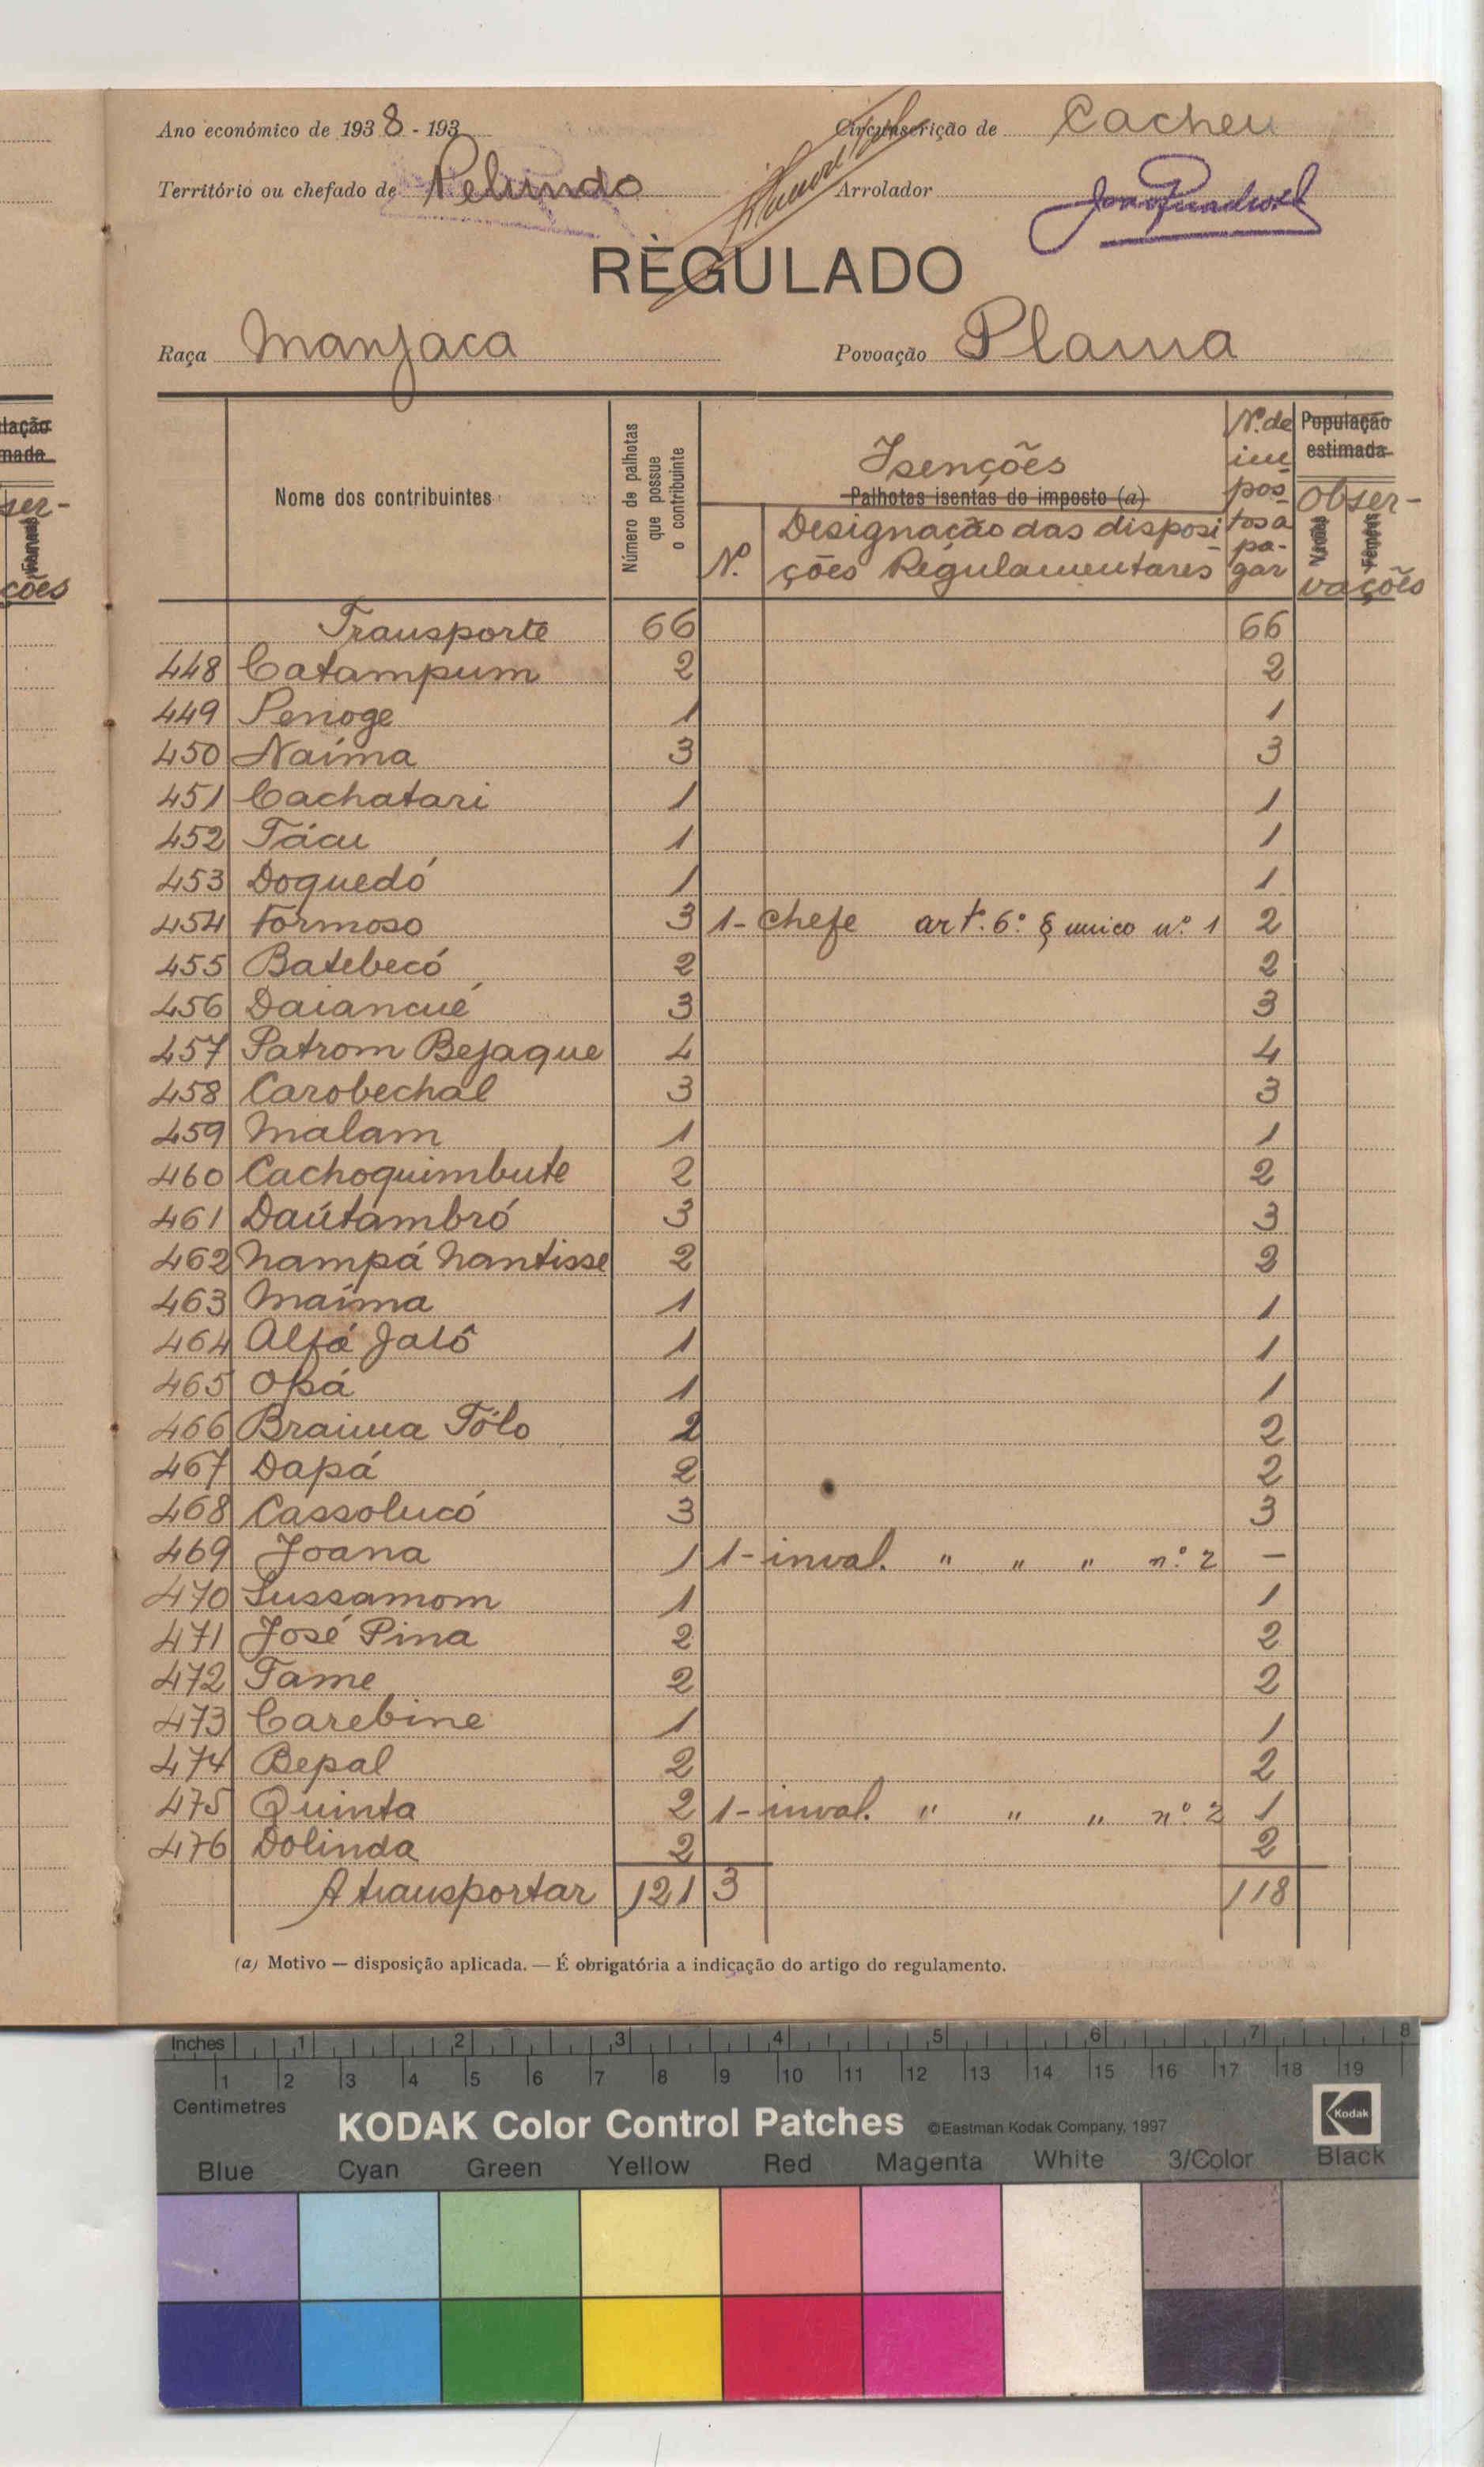 Ano económico de 1938 - 193
Circunscrição de Cacheu
Território ou chefado de Pelundo
Arrolador
RÈGULADO
Raça Manjaca
Povoação Plama
Nome dos contribuintes
Número de palhotas que possue o contribuinte
Isenções
Palhotas isentas do imposto (a)
Nº.
Designação das disposições Regulamentares
Nº. de impostos a pagar
População estimada
Observações
Varões
Fêmeas
Transporte 66 66
448 Catampum 2 2
449 Penoge 1 1
450 Naíma 3 3
451 Cachatari 1 1
452 Tácu 1 1
453 Doquedó 1 1
454 Formoso 3 1- Chefe artº. 6º. § unico nº. 1 2
455 Batebecó 2 2
456 Daiancué 3 3
457 Patrom Bejaque 4 4
458 Carobechal 3 3
459 Malam 1 1
460 Cachoquimbute 2 2
461 Daútámbró 3 3
462 Nampá Nantisse 2 2
463 Maíma 1 1
464 Alfá Jaló 1 1
465 Opá 1 1
466 Braima Tólo 2 2
467 Dapá 2 2
468 Cassolucó 3 3
469 Joana 1 1- inval. " " " nº. 2 —
470 Sussamom 1 1
471 José Pina 2 2
472 Tame 2 2
473 Carebine 1 1
474 Bepal 2 2
475 Quinta 2 1- inval. " " " nº. 2 1
476 Dolinda 2 2
A transportar 121 3 118
(a) Motivo — disposição aplicada. — É obrigatória a indicação do artigo do regulamento.
Inches 1 2 3 4 5 6 7 8
1 2 3 4 5 6 7 8 9 10 11 12 13 14 15 16 17 18 19
Centimetres
KODAK Color Control Patches ©Eastman Kodak Company, 1997 Kodak
Blue Cyan Green Yellow Red Magenta White 3/Color Black